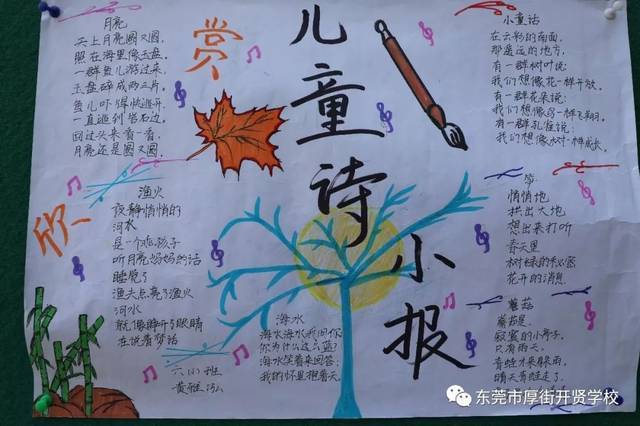 儿童诗小报
欣赏
月亮
天上月亮圆又圆,
照在海里像玉盘,
一群鱼儿游过来,
玉盘碎成两三片,
鱼儿吓得快逃开,
一直逃到岩石边,
回过头来看一看,
月亮还是圆又圆。
渔火
夜静悄悄的
河水
是一个小孩子
听月亮妈妈的话
睡觉了
渔夫点亮了渔火
河水
就像睁开了眼睛
在说着梦话
六(1)班
海水
海水海水我问你
你为什么这么蓝?
海水笑着来回答:
我的怀里抱着天。
小童话
在云彩的南面,
那遥远的地方,
有一群树叶说:
我们想像花一样开放。
有一群花朵说:
我们想像鸟一样飞翔。
有一群孔雀说:
我们想像树一样成长。
笋
悄悄地
拱出大地
想出来打听
春天里
树绿的秘密
花开的消息
蘑菇
蘑菇是
寂寞的小亭子
只有雨天
青蛙才来躲雨,
晴天青蛙走了
东莞市厚街开贤学校